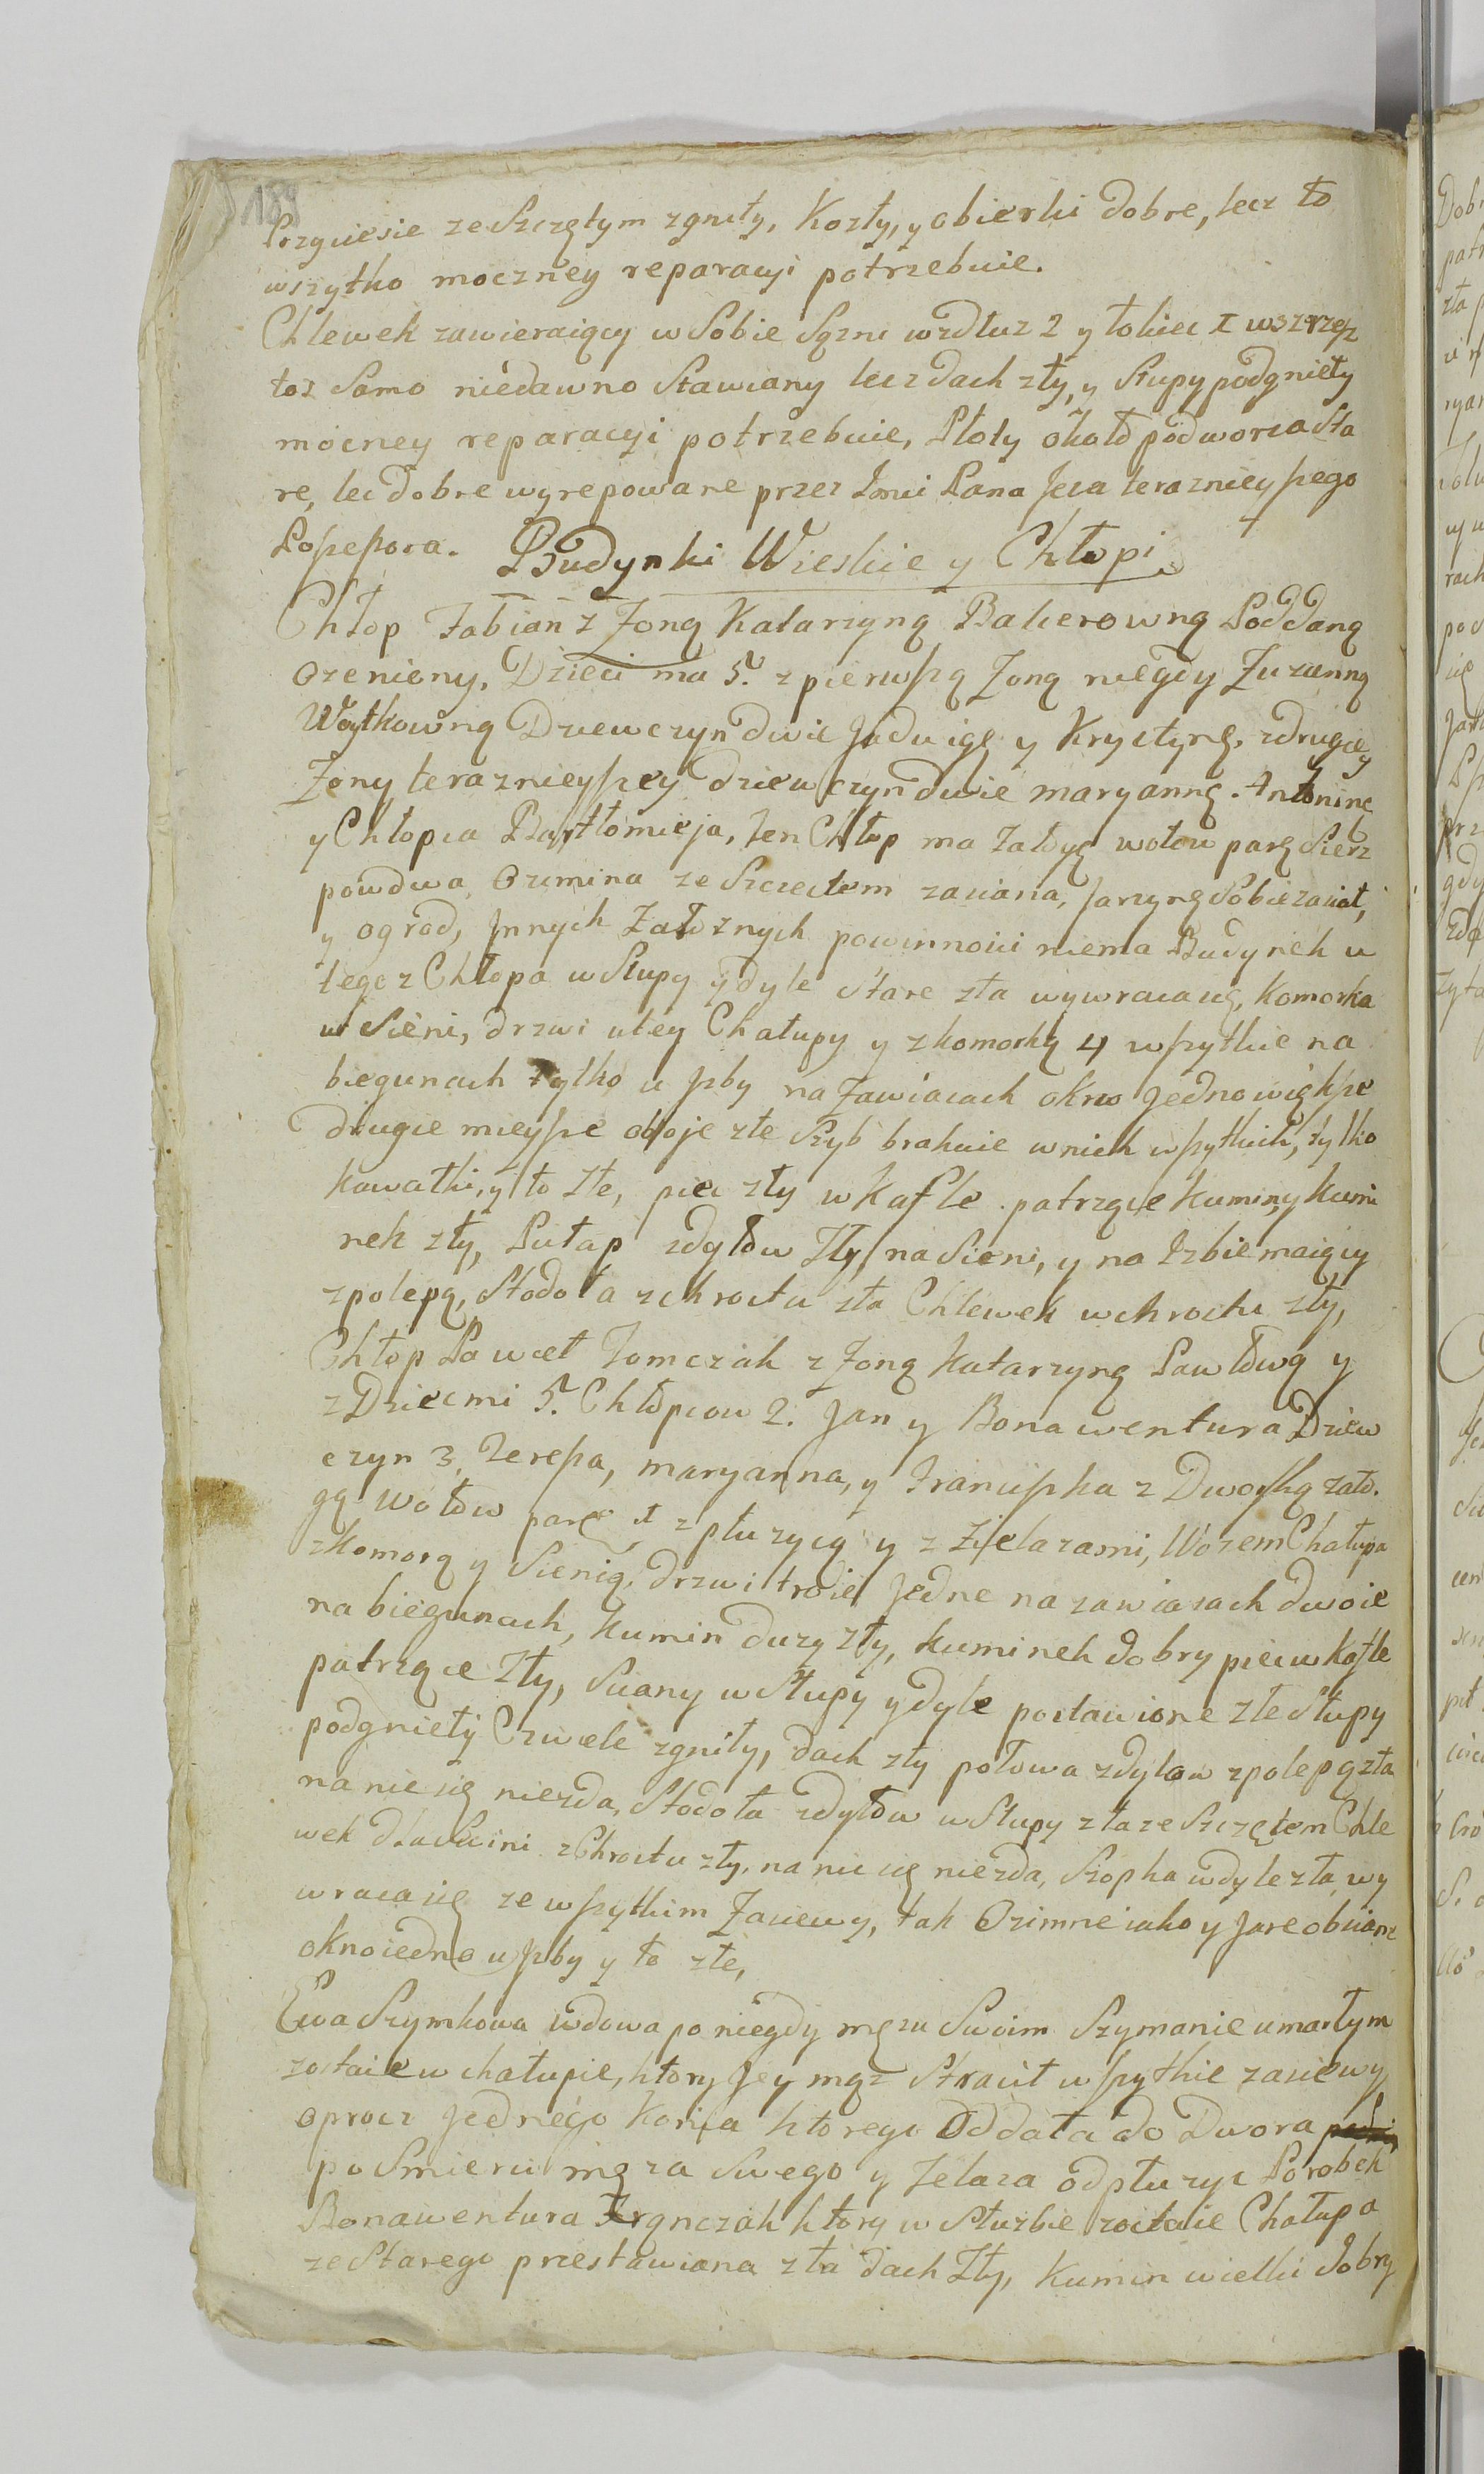 189
Przyciesie ze Szczętym zgniły, Kozły, y obierki dobre, lecz to
wszytko moczney reparacyi potrzebuie.
Chlewek zawieraiący w Sobie Sązni wzdłuz 2 y łokiec I wszrzez
toz Samo niedawno Stawiany lecz dach zły, y Słupy podgnieły
mocney reparacyi potrzebuie, Płoty około podworza Sta
re, lec dobre wyrepowane przez Imci Pana Jeza teraznieyszego
Possessora. Budynki Wieskie y Chłopi
Chłop Fabian z Zoną Katarzyną Bakerowną Poddaną
Ozeniony, Dzieci ma 5. z pierwszą Zoną niegdy Zuzanną
Woytkowną Dziewczyn dwie Jadwigę y Krystynę, z drugiey
Zony teraznieyszey dziewczyn dwie maryannę. Antoninę
y Chłopca Bartłomieja, ten Chłop ma Załogę wołow parę Sierz
pow dwa, Ozimina ze Szczectem zasiana, Jarzynę Sobie zasiał,
y ogrod, Jnnych Załoznych powinnosci niema Budynek u
tegoz Chłopa w Słupy y dyle Stare zła wywraca się, Komorka
w Sieni, drzwi u tey Chałupy y z komorką 4 wszytkie na
biegunach tylko u Jzby na Zawiasach okno Jedno większe
drugie mieysze oboje złe Szyb brakuie w nich wszytkich, tylko
kawałki, y to Złe, piec zły w Kafle patrzące kumin y kumi
nek zły, Pułap z dylow Zły na Sieni, y na Izbie maiący
z polepą, Stodoła z chrostu zła Chlewek w chroscie zły,
Chłop Paweł Tomczak z Zoną Katarzyną Pawłową y
z Dziecmi 5. Chłopcow 2. Jan y Bonawentura Dziew
czyn 3. Teressa, maryanna, y Franciszka z Dworską zało.
gą Wołow parę 1 z płuzycą y z Zielazami, Wozem Chałupa
z Komorą y Sienią, drzwi troie Jedne na zawiasach dwoie
na biegunach, Kumin duzy zły, kuminek dobry piec w Kafle
patrzące Zły, Sciany w Słupy y dyle postawione złe Słupy
podgnieły Czwele zgniły, dach zły połowa z dylow z polepą zła
na nic się niezda, Stodoła z dylow w Słupy zła ze Szczętem Chle
wek dla Swini z Chrostu zły, na nic się niezda, Szopka w dyle zła, wy
wraca się ze wszytkim Zasiewy, tak Ozimne iako y Jare obsiane
okno iedno u Jzby y to złe,
Ewa Szymkowa wdowa po niegdy męzu Swoim Szymanie umarłym
zostaie w chałupie, ktory Jey mąz Stracił wszytkie zasiewy
oprocz Jednego Konia ktorego Oddała do Dwora
po Smierci męza Swego y Zelaza od płuzyc Parobek
Bonawentura ktory w Słuzbie zostaie Chałupa
ze Starego przestawiana zła dach Zły, Kumin wielki dobry